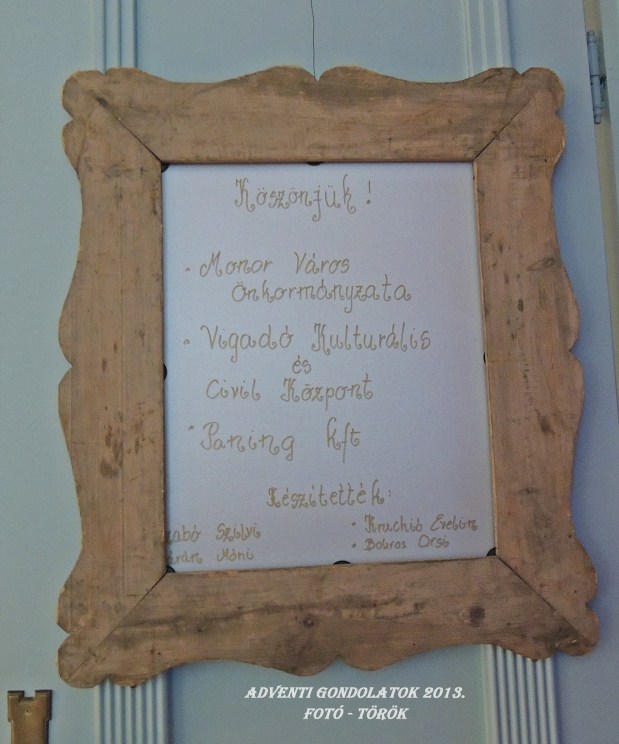 Köszönjük !
• Monor Város
Önkormányzata
• Vigadó Kulturális
és
Civil Központ
• Paning kft
Készítették:
Szilvi
Móni
• Evelin
• Orsi
ADVENTI GONDOLATOK 2013.
FOTÓ - TÖRÖK